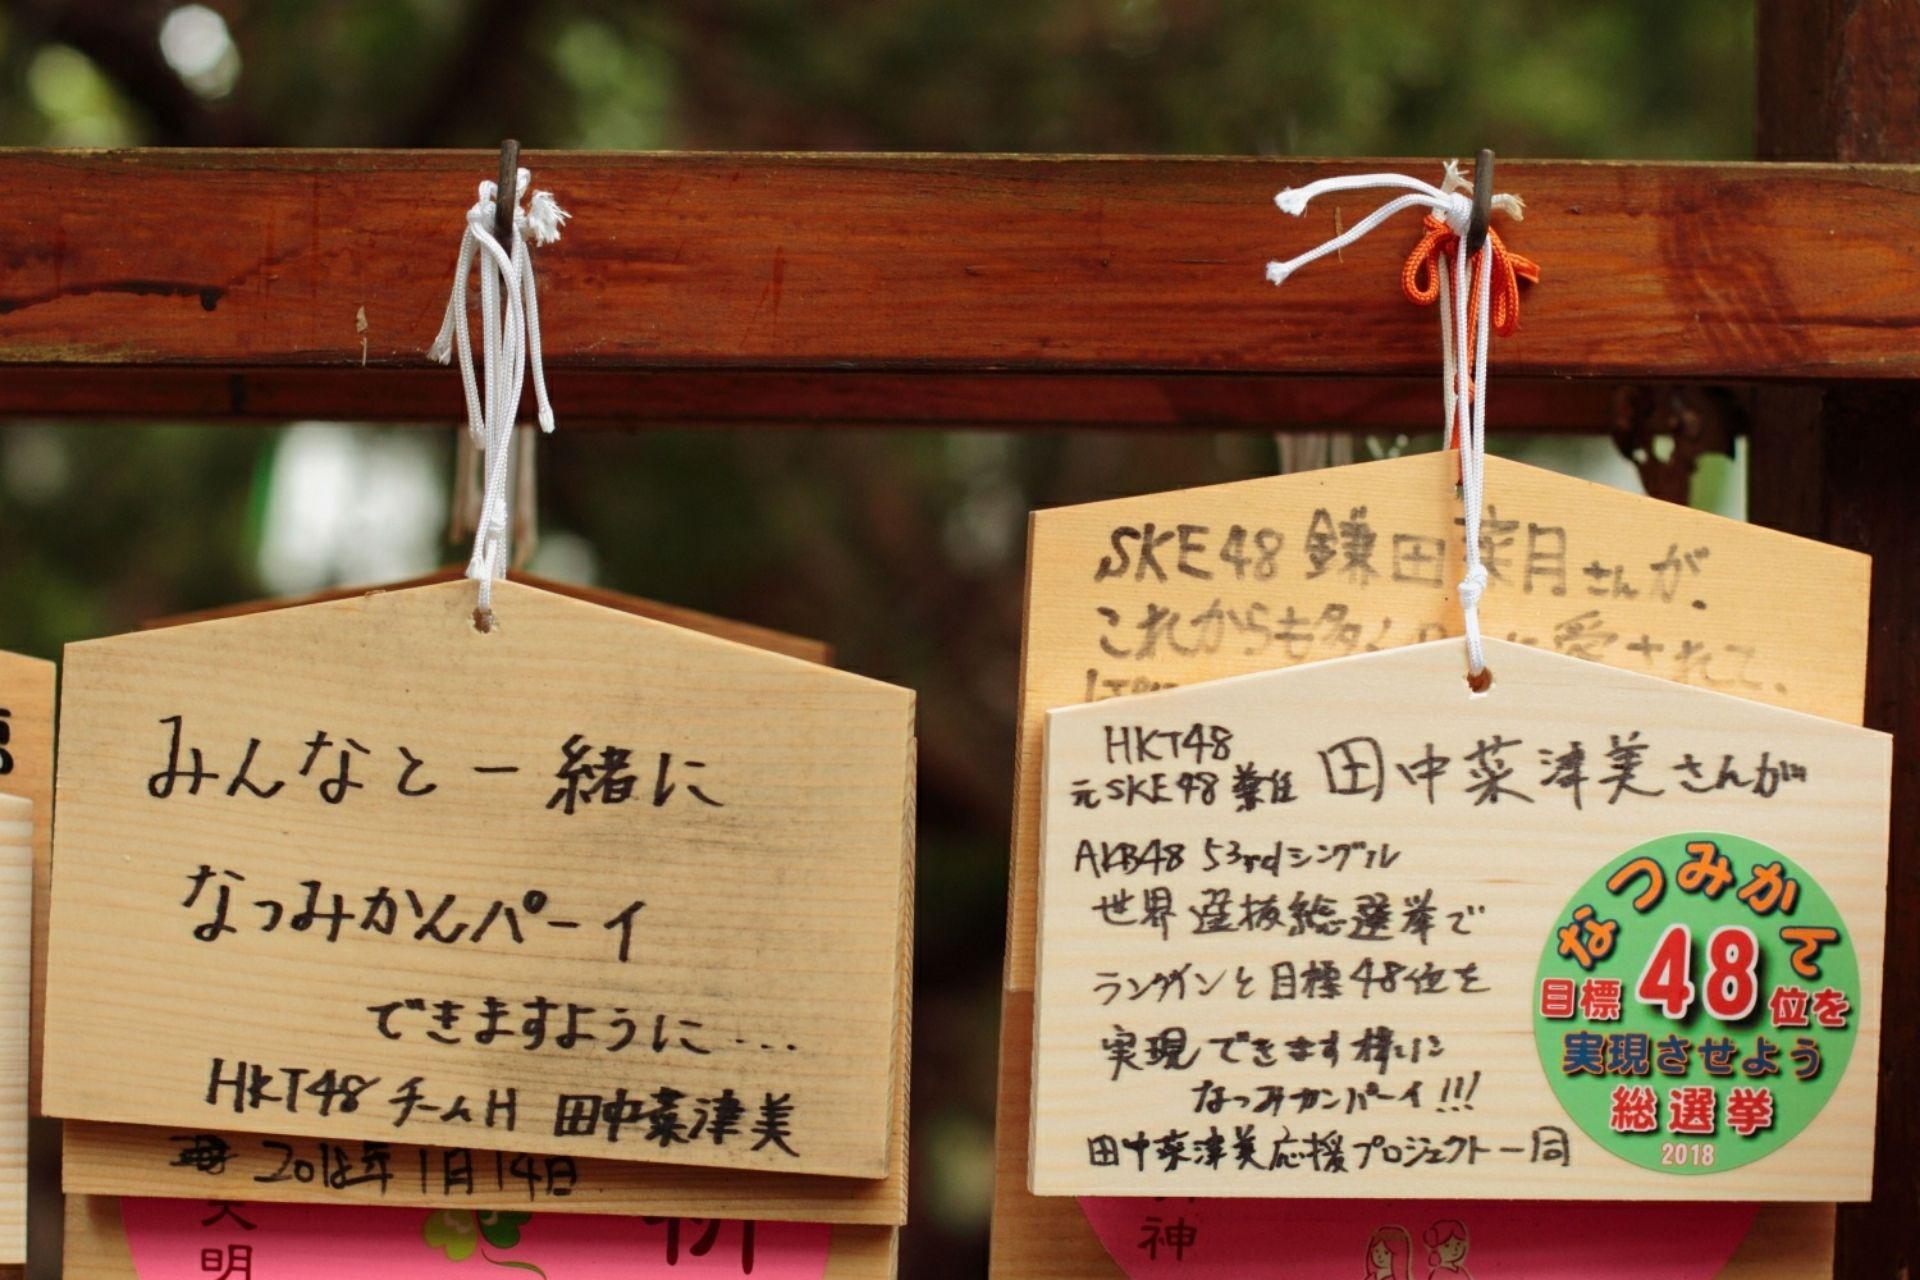 みんなと一緒に
なつみかんパーイ
できますように…
HKT48 チームH 田中菜津美
2018年1月14日
天明
祈
SKE48 鎌田菜月さんが、
これからも多く に愛されて、
HKT48
元SKE48 兼任 田中菜津美さんが
AKB48 53rdシングル
世界選抜総選挙で
ランクインと目標48位を
実現できます様に
なつみカンパーイ!!!
田中菜津美応援プロジェクト一同
なつみかんで
目標48位を
実現させよう
総選挙
2018
神